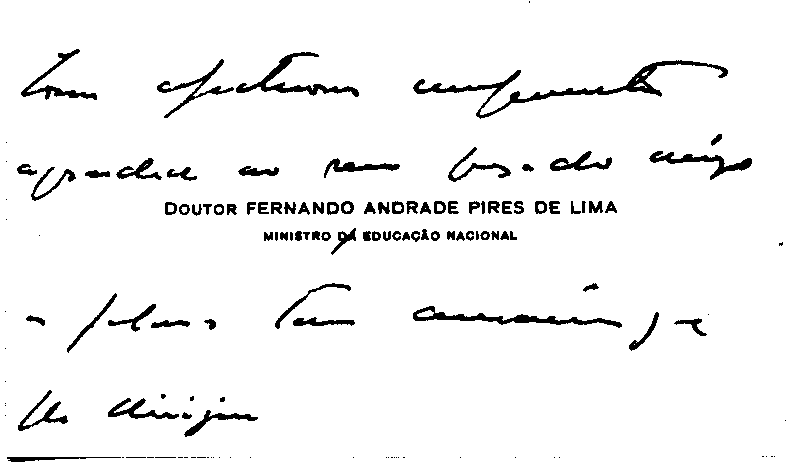 Com afectuosos cumprimentos
agradece ao seu prezado amigo
DOUTOR FERNANDO ANDRADE PIRES DE LIMA
MINISTRO DA EDUCAÇÃO NACIONAL
as palavras tam amáveis, que
lhe dirigiu